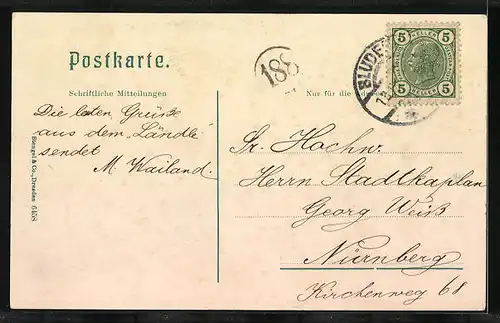 Postkarte.
188
Schriftliche Mitteilungen
Die besten Grüße
aus dem „Ländle“
sendet
M. Wailand.
Stengel & Co., Dresden 6458
5 HELLER 5
5 HELLER 5
BLUDE
Nur für die
Sr. Hochw.
Herrn Stadtkaplan
Georg Weiß
Nürnberg
Kirchenweg 68